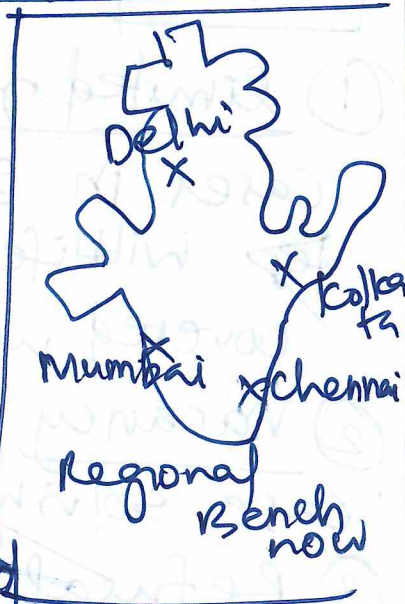 Delhi
Kolka
ta
Mumbai
Chennai
Regional
Bench
now